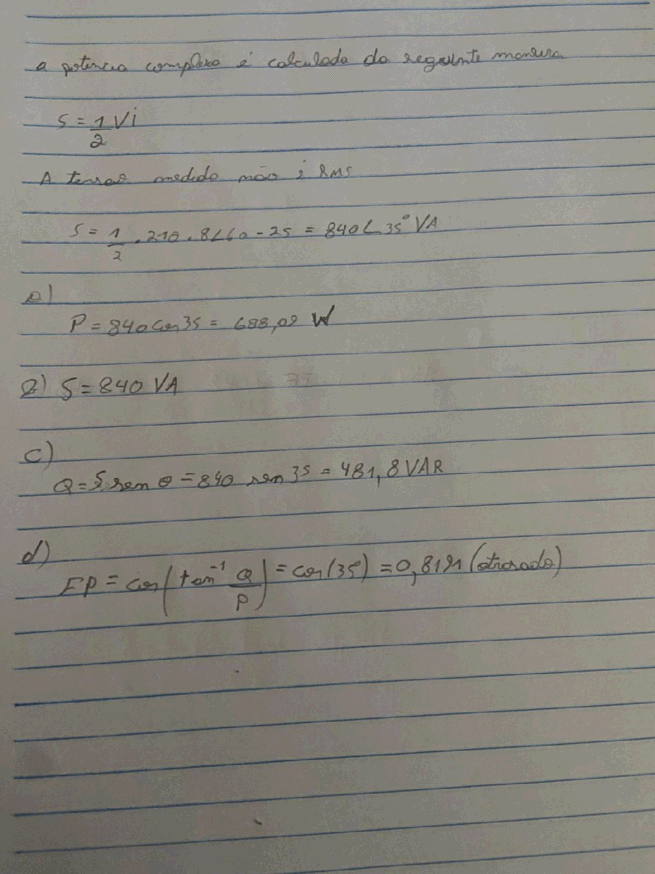 a potencia complexa é calculada da seguinte maneira
S = 1/2 Vi
A tensao medida não é RMS
S = 1/2 . 210 . 8∠60 - 25 = 840∠35° VA
a)
P = 840 cos 35 = 688,08 W
b) S = 840 VA
c)
Q = S sen θ = 840 sen 35 = 481,8 VAR
d)
FP = cos(tan⁻¹ Q/P) = cos(35) = 0,8191 (atrasado)